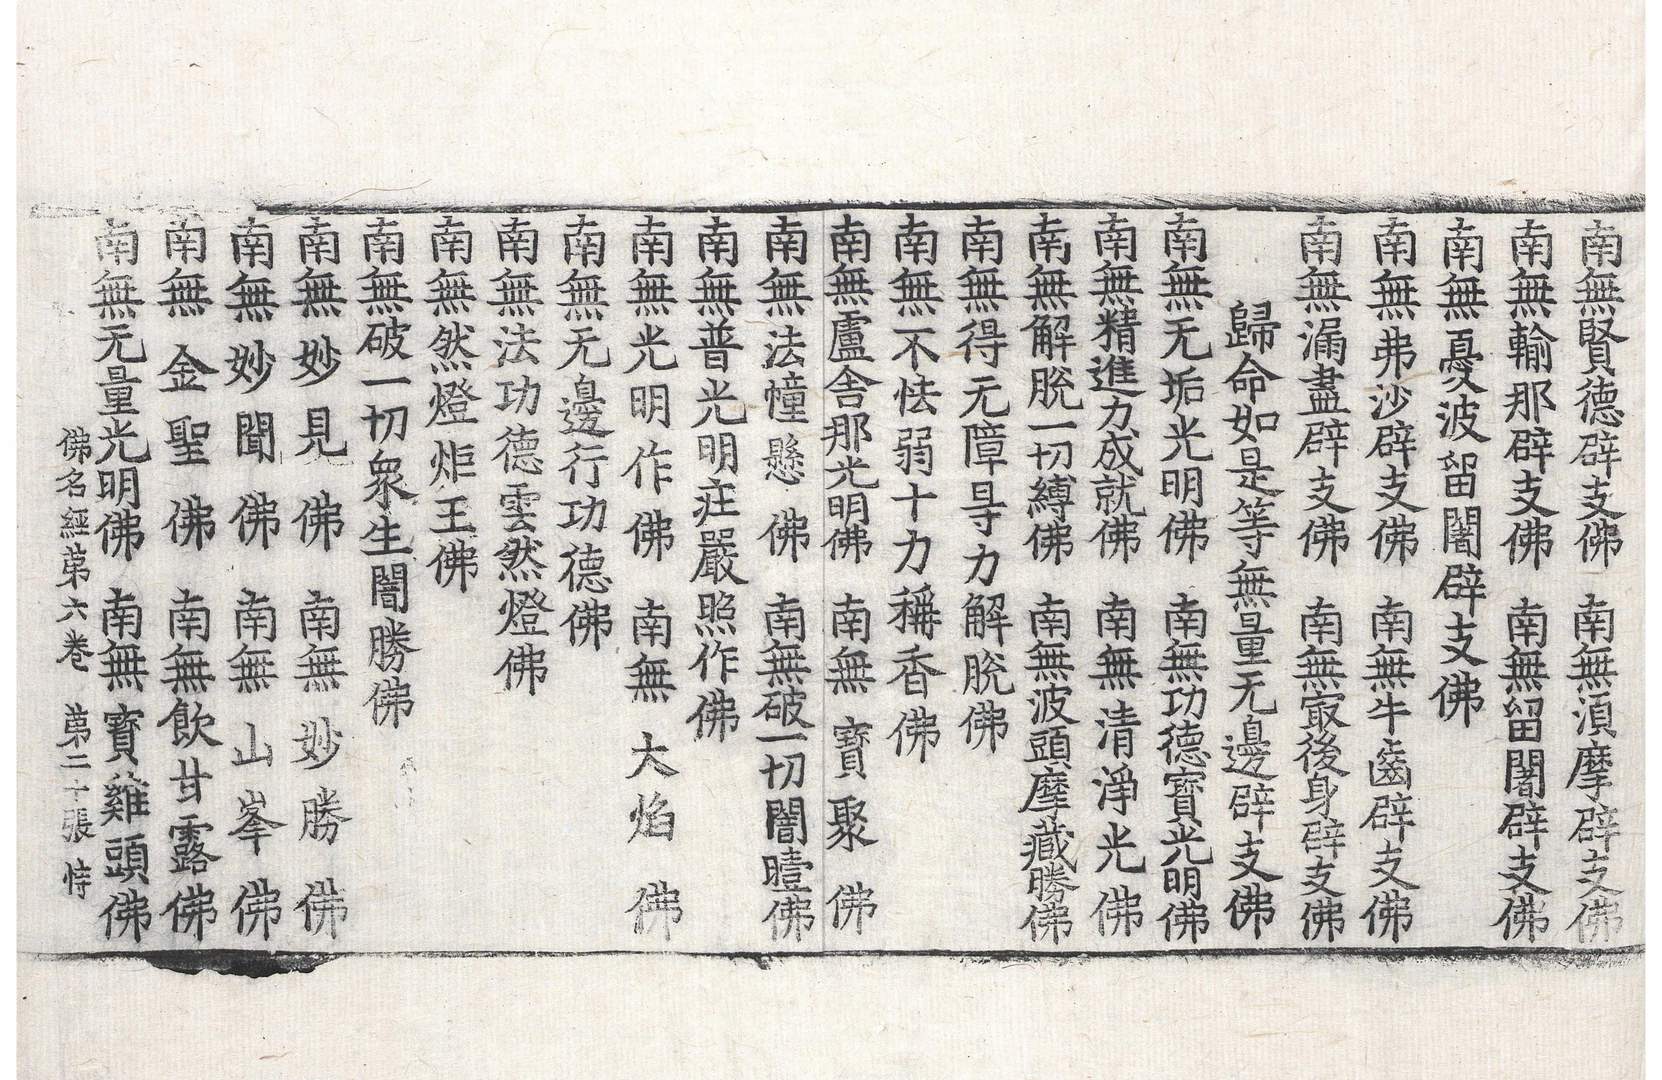 南無賢德辟支佛 南無湏摩辟支佛
南無輸那辟支佛 南無留闍辟支佛
南無憂波留闍辟支佛
南無弗沙辟支佛 南無牛齒辟支佛
南無漏盡辟支佛 南無㝡後身辟支佛
歸命如是等無量无邊辟支佛
南無无垢光明佛 南無功德寶光明佛
南無精進力成就佛 南無清淨光佛
南無解脫一切縛佛 南無波頭摩藏勝佛
南無得无障㝵力解脫佛
南無不怯弱十力稱香佛
南無盧舍那光明佛 南無寶聚佛
南無法幢懸佛 南無破一切闇曀佛
南無普光明庄嚴照作佛
南無光明作佛 南無大焰佛
南無无邊行功德佛
南無法功德雲然燈佛
南無然燈炬王佛
南無破一切衆生闇勝佛
南無妙見佛 南無妙勝佛
南無妙聞佛 南無山峯佛
南無金聖佛 南無飲甘露佛
南無无量光明佛 南無寶雞頭佛
佛名經苐六卷 苐二十張 恃